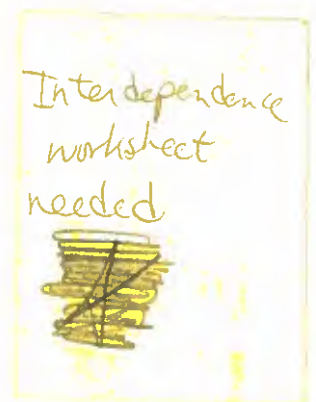 Interdependence
worksheet
needed